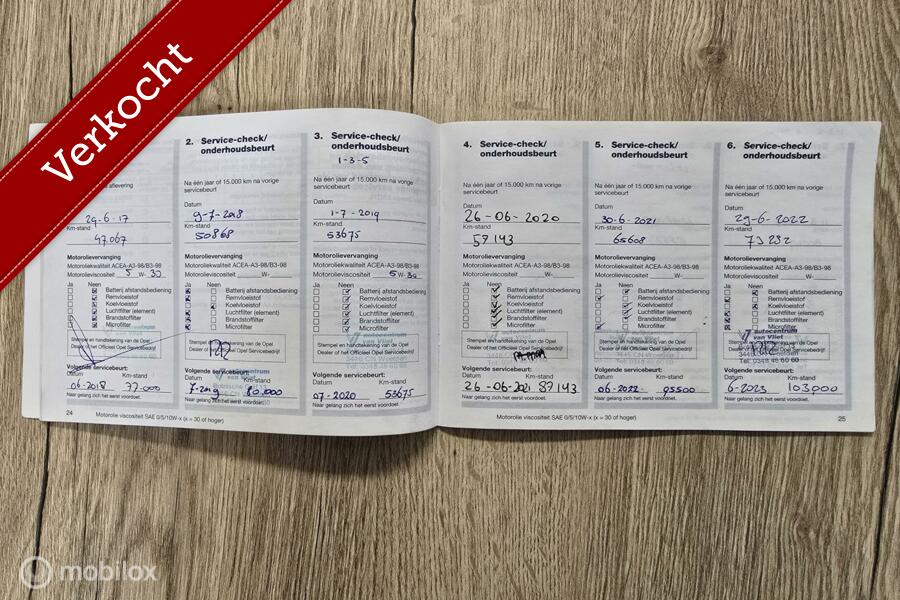 Verkocht
aflevering
29-6-17
Km-stand
47.067
Motorolievervanging
Motoroliekwaliteit ACEA-A3-98/B3-98
Motorolieviscositeit 5 W- 30
Ja Neen
Batterij afstandsbediening
Remvloeistof
Koelvloeistof
Luchtfilter (element)
Brandstoffilter
Microfilter
Stempel en handtekening van de Opel
Dealer of het Officieel Opel Servicebedrijf
Volgende servicebeurt:
Datum Km-stand
06-2018 77.000
Naar gelang zich het eerst voordoet.
24
2. Service-check/
onderhoudsbeurt
Na één jaar of 15.000 km na vorige
servicebeurt
Datum
9-7-2018
Km-stand
50868
Motorolievervanging
Motoroliekwaliteit ACEA-A3-98/B3-98
Motorolieviscositeit W-
Ja Neen
Batterij afstandsbediening
Remvloeistof
Koelvloeistof
Luchtfilter (element)
Brandstoffilter
Microfilter
Stempel en handtekening van de Opel
Dealer of het Officieel Opel Servicebedrijf
autocentrum
van Vliet
Volgende servicebeurt:
Datum Km-stand
7-2019 80.000
Naar gelang zich het eerst voordoet.
3. Service-check/
onderhoudsbeurt
1-3-5
Na één jaar of 15.000 km na vorige
servicebeurt
Datum
1-7-2019
Km-stand
53675
Motorolievervanging
Motoroliekwaliteit ACEA-A3-98/B3-98
Motorolieviscositeit 5 W- 30
Ja Neen
Batterij afstandsbediening
Remvloeistof
Koelvloeistof
Luchtfilter (element)
Brandstoffilter
Microfilter
autocentrum
van Vliet
Stempel en handtekening van de Opel
Dealer of het Officieel Opel Servicebedrijf
Volgende servicebeurt:
Datum Km-stand
07-2020 53675
Naar gelang zich het eerst voordoet.
Motorolie viscositeit SAE 0/5/10W-x (x = 30 of hoger)
4. Service-check/
onderhoudsbeurt
Na één jaar of 15.000 km na vorige
servicebeurt
Datum
26-06-2020
Km-stand
57143
Motorolievervanging
Motoroliekwaliteit ACEA-A3-98/B3-98
Motorolieviscositeit W-
Ja Neen
Batterij afstandsbediening
Remvloeistof
Koelvloeistof
Luchtfilter (element)
Brandstoffilter
Microfilter
Stempel en handtekening van de Opel
Dealer of het Officieel Opel Servicebedrijf
Volgende servicebeurt:
Datum Km-stand
26-06-2021 87143
Naar gelang zich het eerst voordoet.
Motorolie viscositeit SAE 0/5/10W-x (x = 30 of hoger)
5. Service-check/
onderhoudsbeurt
Na één jaar of 15.000 km na vorige
servicebeurt
Datum
30-6-2021
Km-stand
65608
Motorolievervanging
Motoroliekwaliteit ACEA-A3-98/B3-98
Motorolieviscositeit W-
Ja Neen
Batterij afstandsbediening
Remvloeistof
Koelvloeistof
Luchtfilter (element)
Brandstoffilter
Microfilter
Stempel en handtekening van de Opel
Dealer of het Officieel Opel Servicebedrijf
3446 CN Woerden
Tel: 0348 45 60 60
Volgende servicebeurt:
Datum Km-stand
06-2022 95500
Naar gelang zich het eerst voordoet.
6. Service-check/
onderhoudsbeurt
Na één jaar of 15.000 km na vorige
servicebeurt
Datum
29-6-2022
Km-stand
73232
Motorolievervanging
Motoroliekwaliteit ACEA-A3-98/B3-98
Motorolieviscositeit W-
Ja Neen
Batterij afstandsbediening
Remvloeistof
Koelvloeistof
Luchtfilter (element)
Brandstoffilter
Microfilter
autocentrum
van Vliet
Stempel en handtekening van de Opel
Dealer of het Officieel Opel Servicebedrijf
Tel: 0348 45 60 60
Volgende servicebeurt:
Datum Km-stand
6-2023 103,000
Naar gelang zich het eerst voordoet.
25
mobilox